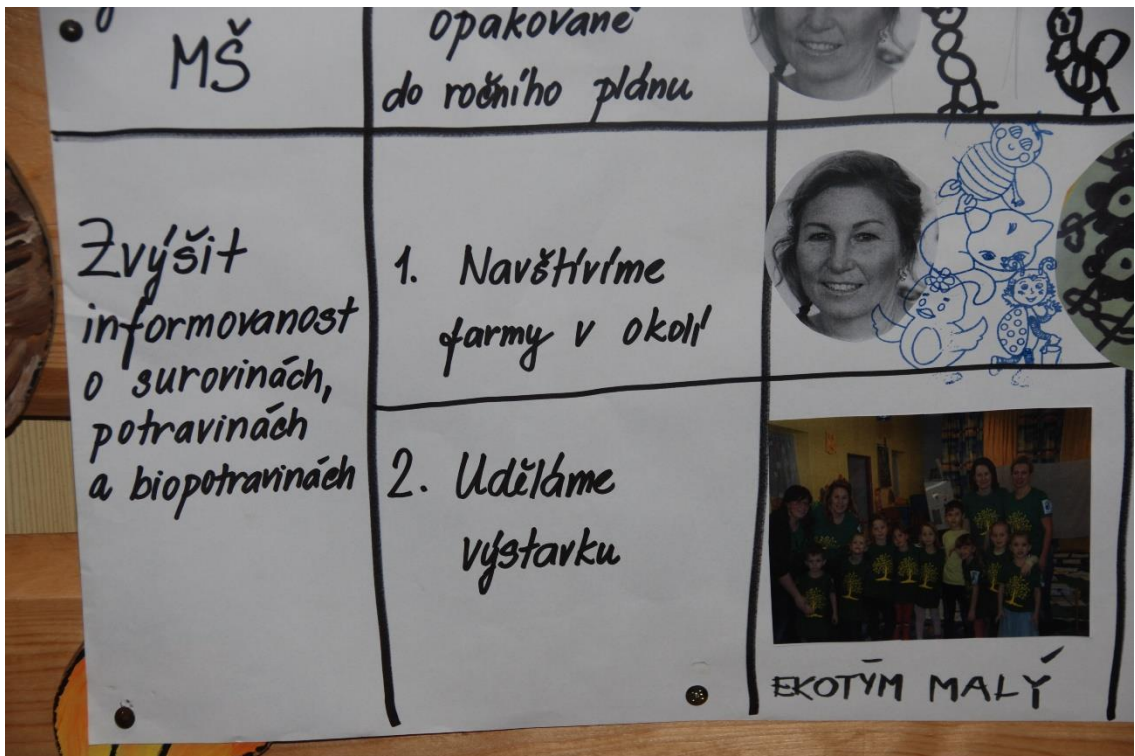 MŠ
opakovaně
do ročního plánu
Zvýšit
informovanost
o surovinách,
potravinách
a biopotravinách
1. Navštívíme
farmy v okolí
2. Uděláme
výstavku
EKOTÝM MALÝ